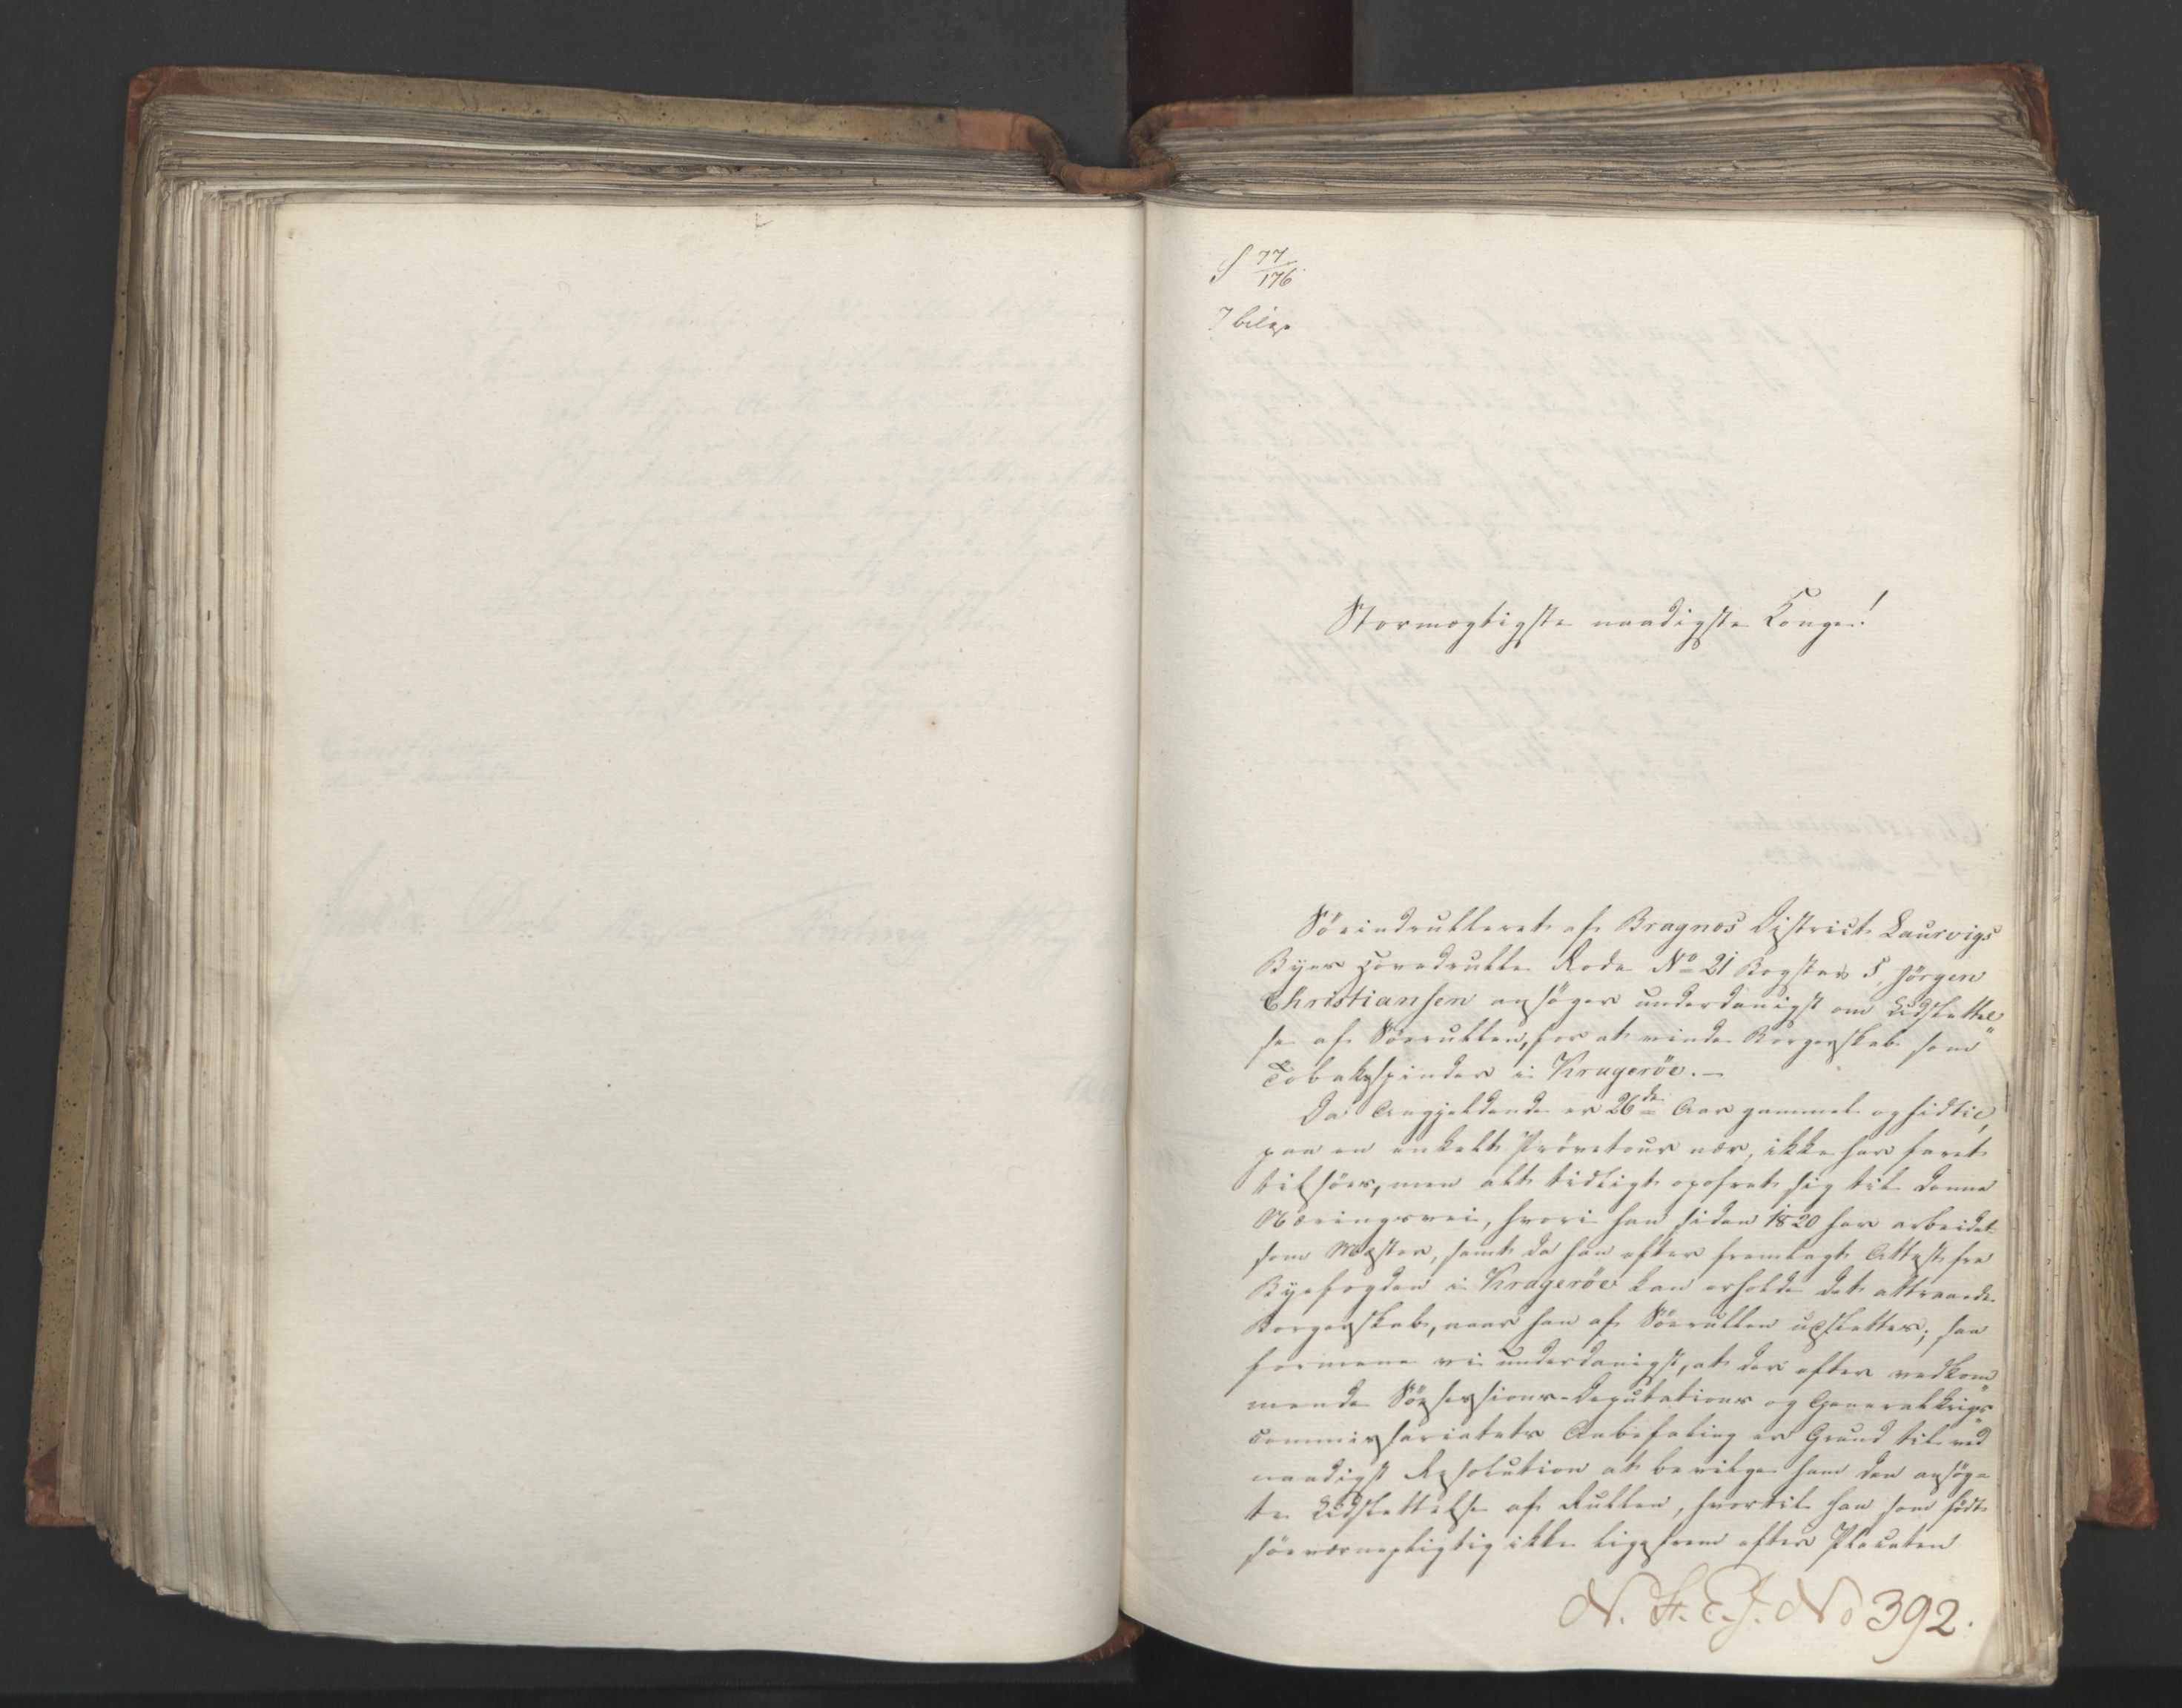 S 77/176
7 bilag
Stormægtigste naadigste Konge!
Söeindrulleret af Bragnæs District Laurvigs
Byes Hovedrulle Rode No 21 Bogstav S, Jörgen
Christiansen ansöger underdanigst om Udslettel
se af Söerullen, for at vinde Borgerskab som
Tobakspinder i Krageröe. —
Da Angjeldende er 26de Aar gammel og hidtil,
paa en enkelt Prövetour nær, ikke har faret
tilsöes, men alt tidligt opofret sig til denne
Næringsvei, hvori han siden 1820 har arbeidet
som Mester, samt da han efter fremlagt Attest fra
Byefogden i Krageröe kan erholde det attraaede
Borgerskab, naar han af Söerullen udslettes; saa
formene vi underdanigst, at der efter vedkom
mende Söesessions-Deputations og Generalkrigs
commissariatets Anbefaling er Grund til ved
naadigst Resolution at bevilge ham den ansög-
te Udslettelse af Rullen, hvortil han som födt
söeværnepligtig ikke ligefrem efter Placaten
N. St. E. J. No 392.